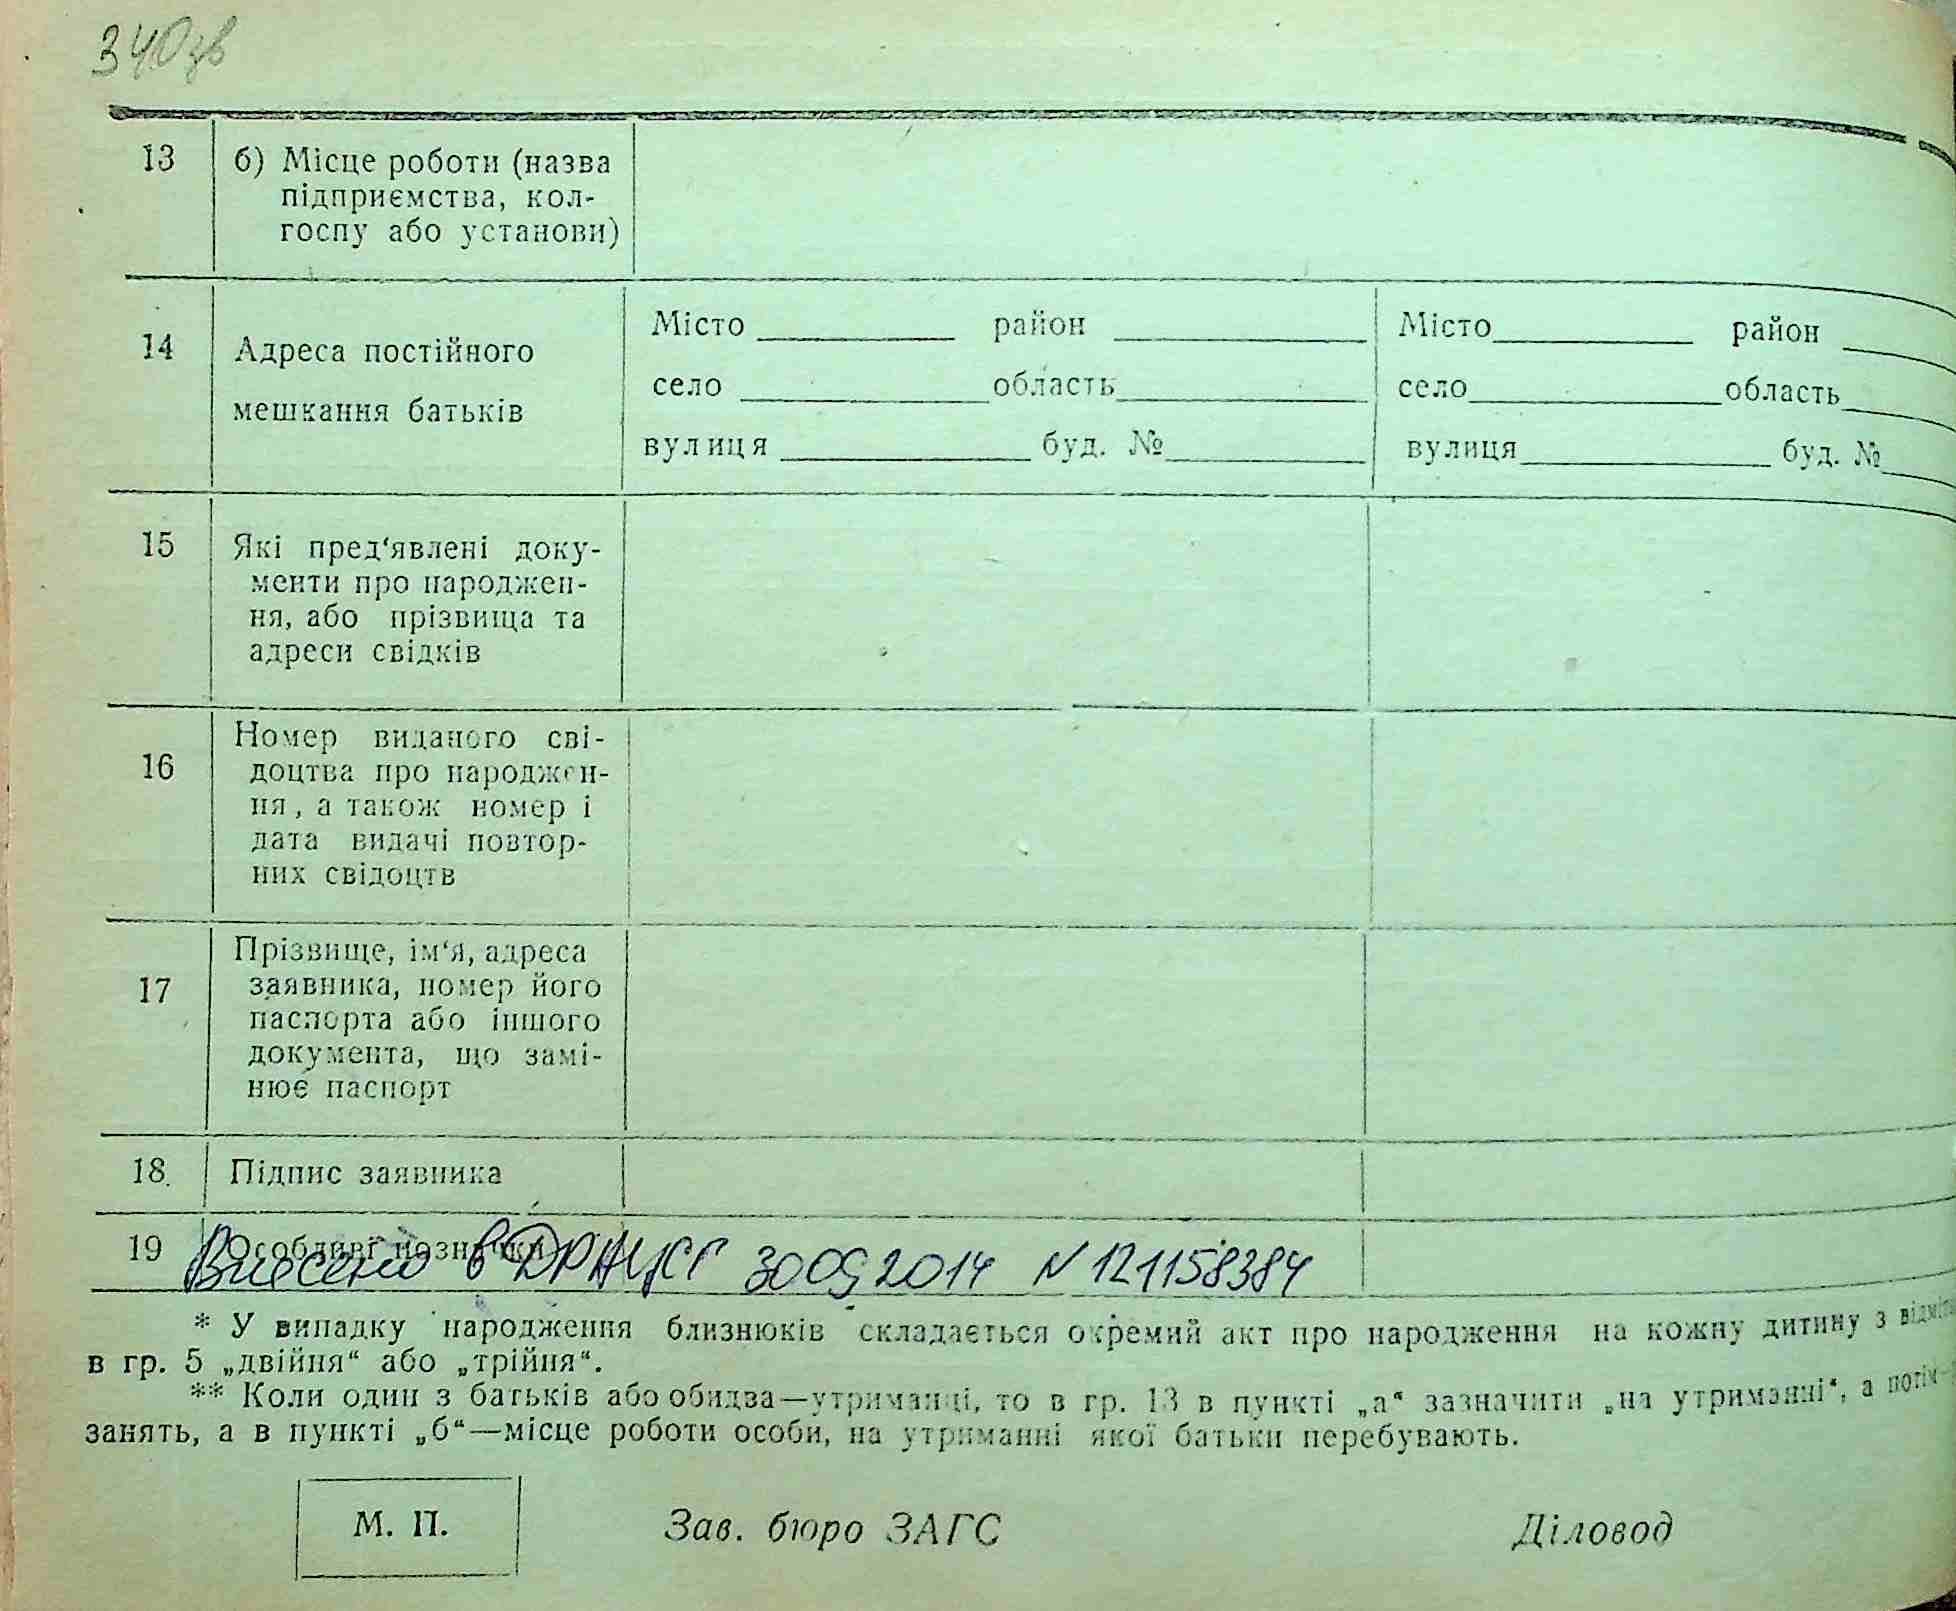 340зв
13 б) Місце роботи (назва
підприємства, кол-
госпу або установи)
14 Адреса постійного
мешкання батьків
Місто район
село область
вулиця буд. №
Місто район
село область
вулиця буд. №
15 Які пред‘явлені доку-
менти про народжен-
ня, або прізвища та
адреси свідків
16 Номер виданого сві-
доцтва про народжен-
ня, а також номер і
дата видачі повтор-
них свідоцтв
17 Прізвище, ім‘я, адреса
заявника, номер його
паспорта або іншого
документа, що замі-
нює паспорт
18. Підпис заявника
19 Особливі позначки
Внесено в ДРАЦСГ 30092014 N 121158384
* У випадку народження близнюків складається окремий акт про народження на кожну дитину з
в гр. 5 „двійня“ або „трійня“.
** Коли один з батьків або обидва—утриманці, то в гр. 13 в пункті „а“ зазначити „на утриманні“, а потім—
занять, а в пункті „б“—місце роботи особи, на утриманні якої батьки перебувають.
М. П. Зав. бюро ЗАГС Діловод